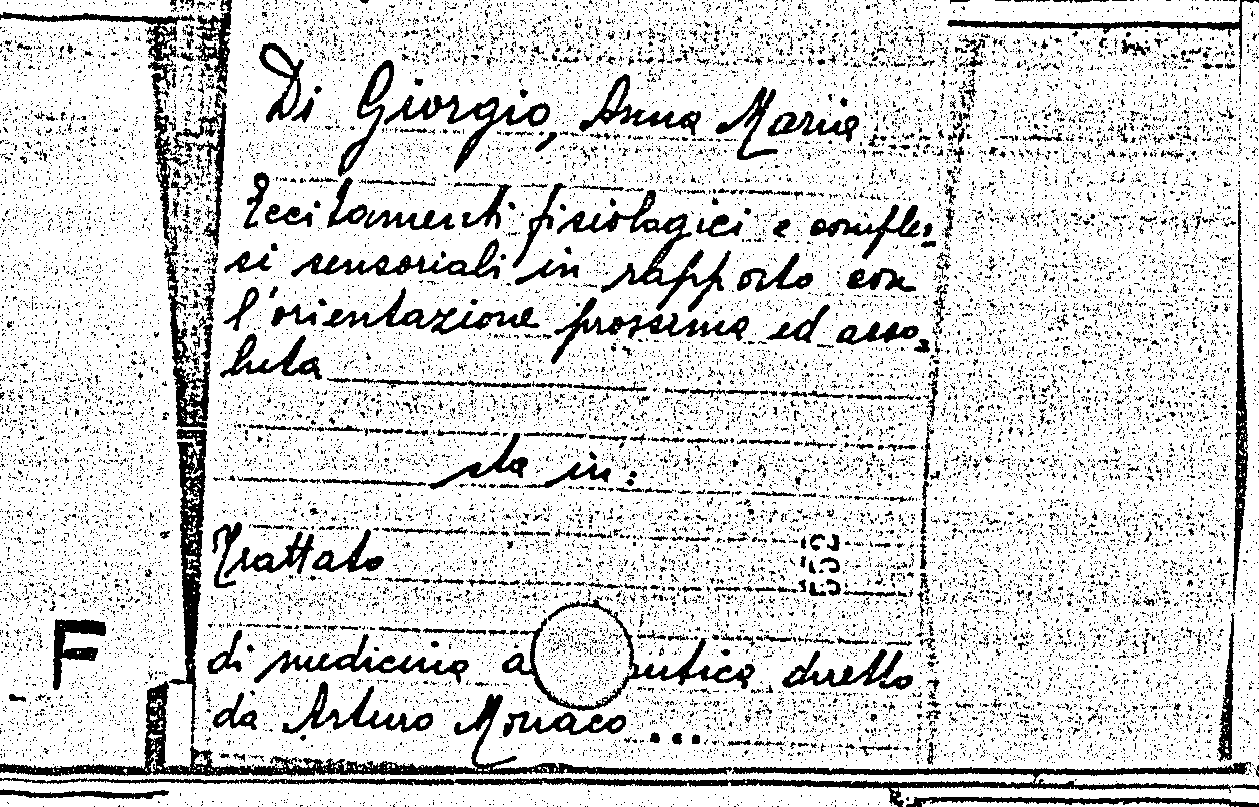 Di Giorgio, Anna Maria
Eccitamenti fisiologici e comples-
si sensoriali in rapporto con
l'orientazione prossima ed asso-
luta
sta in:
Trattato
di medicina diretto
da Arturo Monaco ...
F